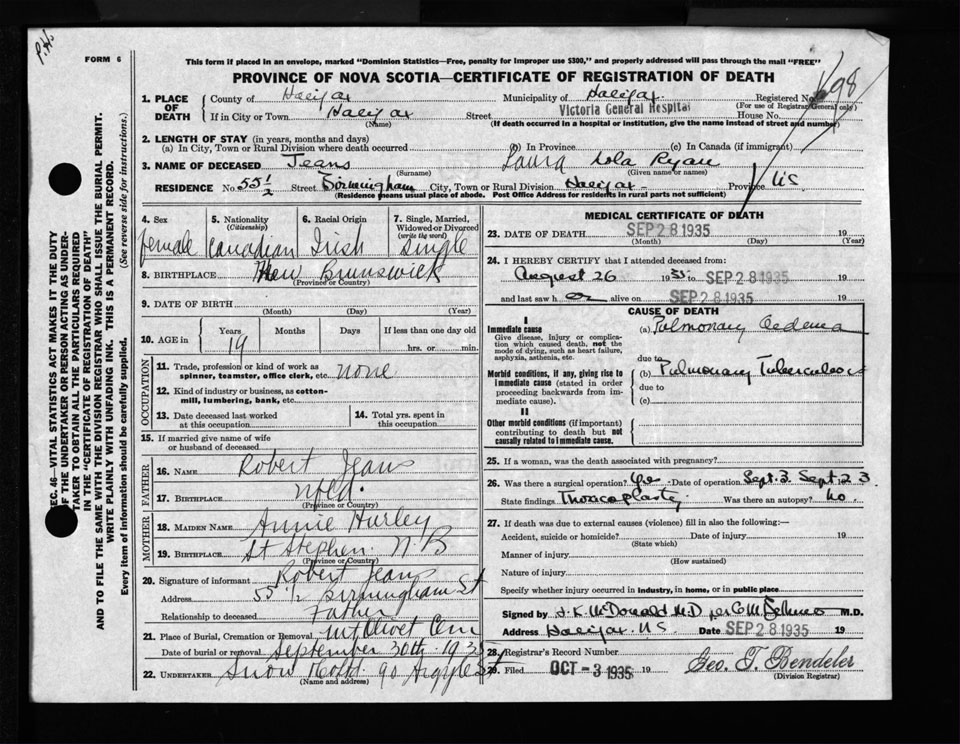 P.H.
FORM 6
This form if placed in an envelope, marked "Dominion Statistics—Free, penalty for improper use $300," and properly addressed will pass through the mail "FREE"
PROVINCE OF NOVA SCOTIA—CERTIFICATE OF REGISTRATION OF DEATH
1. PLACE OF DEATH
County of Halifax
Municipality of Halifax
Registered No. 98
(For use of Registrar General only)
If in City or Town Halifax
(Name)
Street Victoria General Hospital
House No.
(If death occurred in a hospital or institution, give the name instead of street and number)
2. LENGTH OF STAY (in years, months and days)
(a) In City, Town or Rural Division where death occurred
(b) In Province
(c) In Canada (if immigrant)
3. NAME OF DECEASED Jeans Laura Lola Ryan
(Surname) (Given name or names)
RESIDENCE No. 55 1/2 Street Birmingham City, Town or Rural Division Halifax Province NS
(Residence means usual place of abode. Post Office Address for residents in rural parts not sufficient)
4. Sex
female
5. Nationality
(Citizenship)
Canadian
6. Racial Origin
Irish
7. Single, Married, Widowed or Divorced
(write the word)
Single
8. BIRTHPLACE New Brunswick
(Province or Country)
9. DATE OF BIRTH
(Month) (Day) (Year)
10. AGE in
Years Months Days If less than one day old
19 hrs. or min.
OCCUPATION
11. Trade, profession or kind of work as spinner, teamster, office clerk, etc. none
12. Kind of industry or business, as cotton-mill, lumbering, bank, etc.
13. Date deceased last worked at this occupation
14. Total yrs. spent in this occupation
15. If married give name of wife or husband of deceased
FATHER
16. NAME Robert Jeans
17. BIRTHPLACE Nfld.
(Province or Country)
MOTHER
18. MAIDEN NAME Annie Hurley
19. BIRTHPLACE St Stephen N.B
(Province or Country)
20. Signature of informant Robert Jeans
Address 55 1/2 Birmingham St
Relationship to deceased Father
21. Place of Burial, Cremation or Removal Mt Olivet Cem
Date of burial or removal September 30th 1935
22. UNDERTAKER Snow 90 Argyle St
(Name and address)
MEDICAL CERTIFICATE OF DEATH
23. DATE OF DEATH SEP 28 1935 19
(Month) (Day) (Year)
24. I HEREBY CERTIFY that I attended deceased from:
August 26 1935 to SEP 28 1935 19
and last saw h er alive on SEP 28 1935 19
CAUSE OF DEATH
I
Immediate cause
Give disease, injury or complication which caused death, not the mode of dying, such as heart failure, asphyxia, asthenia, etc.
(a) Pulmonary Oedema
due to
Morbid conditions, if any, giving rise to immediate cause (stated in order proceeding backwards from immediate cause).
(b) Pulmonary Tuberculosis
due to
(c)
II
Other morbid conditions (if important) contributing to death but not causally related to immediate cause.
25. If a woman, was the death associated with pregnancy?
26. Was there a surgical operation? Yes Date of operation Sept. 3 Sept. 23
State findings Thoracoplasty Was there an autopsy? No
27. If death was due to external causes (violence) fill in also the following:—
Accident, suicide or homicide? Date of injury 19
(State which)
Manner of injury
(How sustained)
Nature of injury
Specify whether injury occurred in industry, in home, or in public place
Signed by J. K. McDonald M.D per M.D.
Address Halifax N.S. Date SEP 28 1935 19
28. Registrar's Record Number
29. Filed OCT - 3 1935 19 Geo. T. Bendeler
(Division Registrar)
SEC. 46—VITAL STATISTICS ACT MAKES IT THE DUTY
OF THE UNDERTAKER OR PERSON ACTING AS UNDER-
TAKER TO OBTAIN ALL THE PARTICULARS REQUIRED
IN THE "CERTIFICATE OF REGISTRATION OF DEATH"
AND TO FILE THE SAME WITH THE DIVISION REGISTRAR WHO SHALL ISSUE THE BURIAL PERMIT.
WRITE PLAINLY WITH UNFADING INK. THIS IS A PERMANENT RECORD.
Every item of information should be carefully supplied. (See reverse side for instructions.)